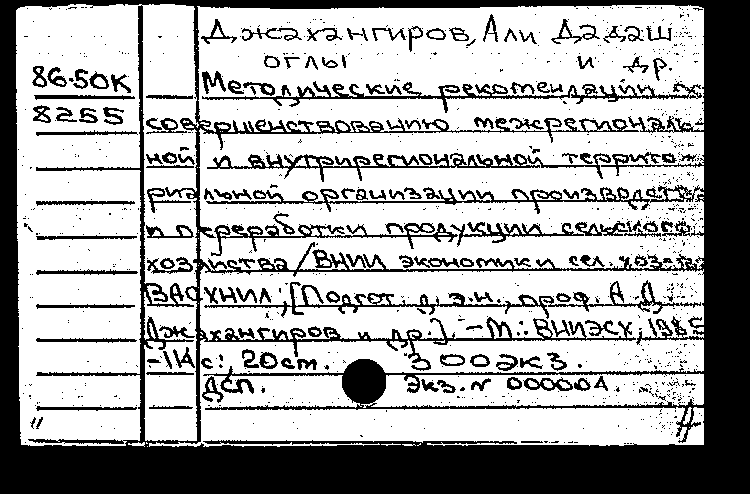 Джахангиров, Али Дадаш
оглы и др.
86-50К
8255
Методические рекомендации по
совершенствованию межрегиональ-
ной и внутрирегиональной террито-
риальной организации производства
и переработки продукции сельского
хозяйства/ВНИИ экономики сел. хоз-ва
ВАСХНИЛ; [Подгот. д. э. н., проф. А. Д.
Джахангиров и др.]. - М.: ВНИЭСХ, 1985
-114 с.; 20 см. 300 экз.
ДСП. Экз. N 000004.
"